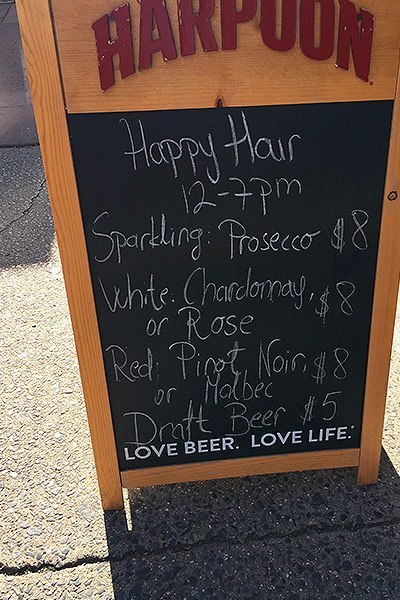 HARPOON
Happy Hour
12-7pm
Sparkling: Prosecco $8
White: Chardonnay, $8
or Rose
Red: Pinot Noir, $8
or Malbec
Draft Beer $5
LOVE BEER. LOVE LIFE.